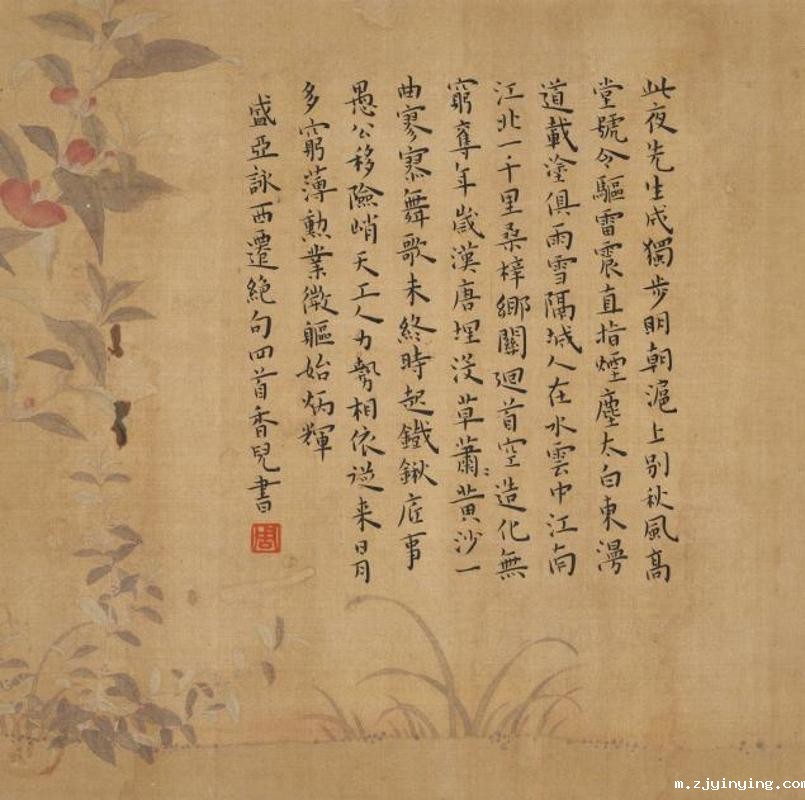 此夜先生成獨步明朝滬上别秋風高
堂號令驅雷震直指煙塵太白東漫
道載塗俱雨雪隔城人在水雲中江南
江北一千里桑梓鄉關迴首空造化無
窮奪年歲漢唐埋没草蕭蕭黄沙一
曲寥寥舞歌未終時起鐵鍬底事
愚公移險峭天工人力勢相依從来日月
多窮薄勲業微軀始炳輝
盛亞詠西遷絶句四首香兒書
m.zjyinying.com